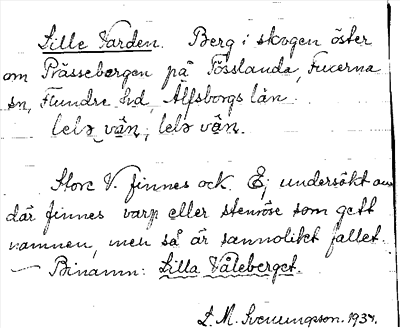 Lille Varden. Berg i skogen öster
om Prässebergen på Tösslanda, Fuxerna
sn, Flundre hd, Älfsborgs län.
lelə vân, lelə vân.
Store V. finnes ock. Ej undersökt om
där finnes varp eller stenröse som gett
namnen, men så är sannolikt fallet.
— Binamn: Lilla Våleberget.
L. M. Svenungsson. 1934.